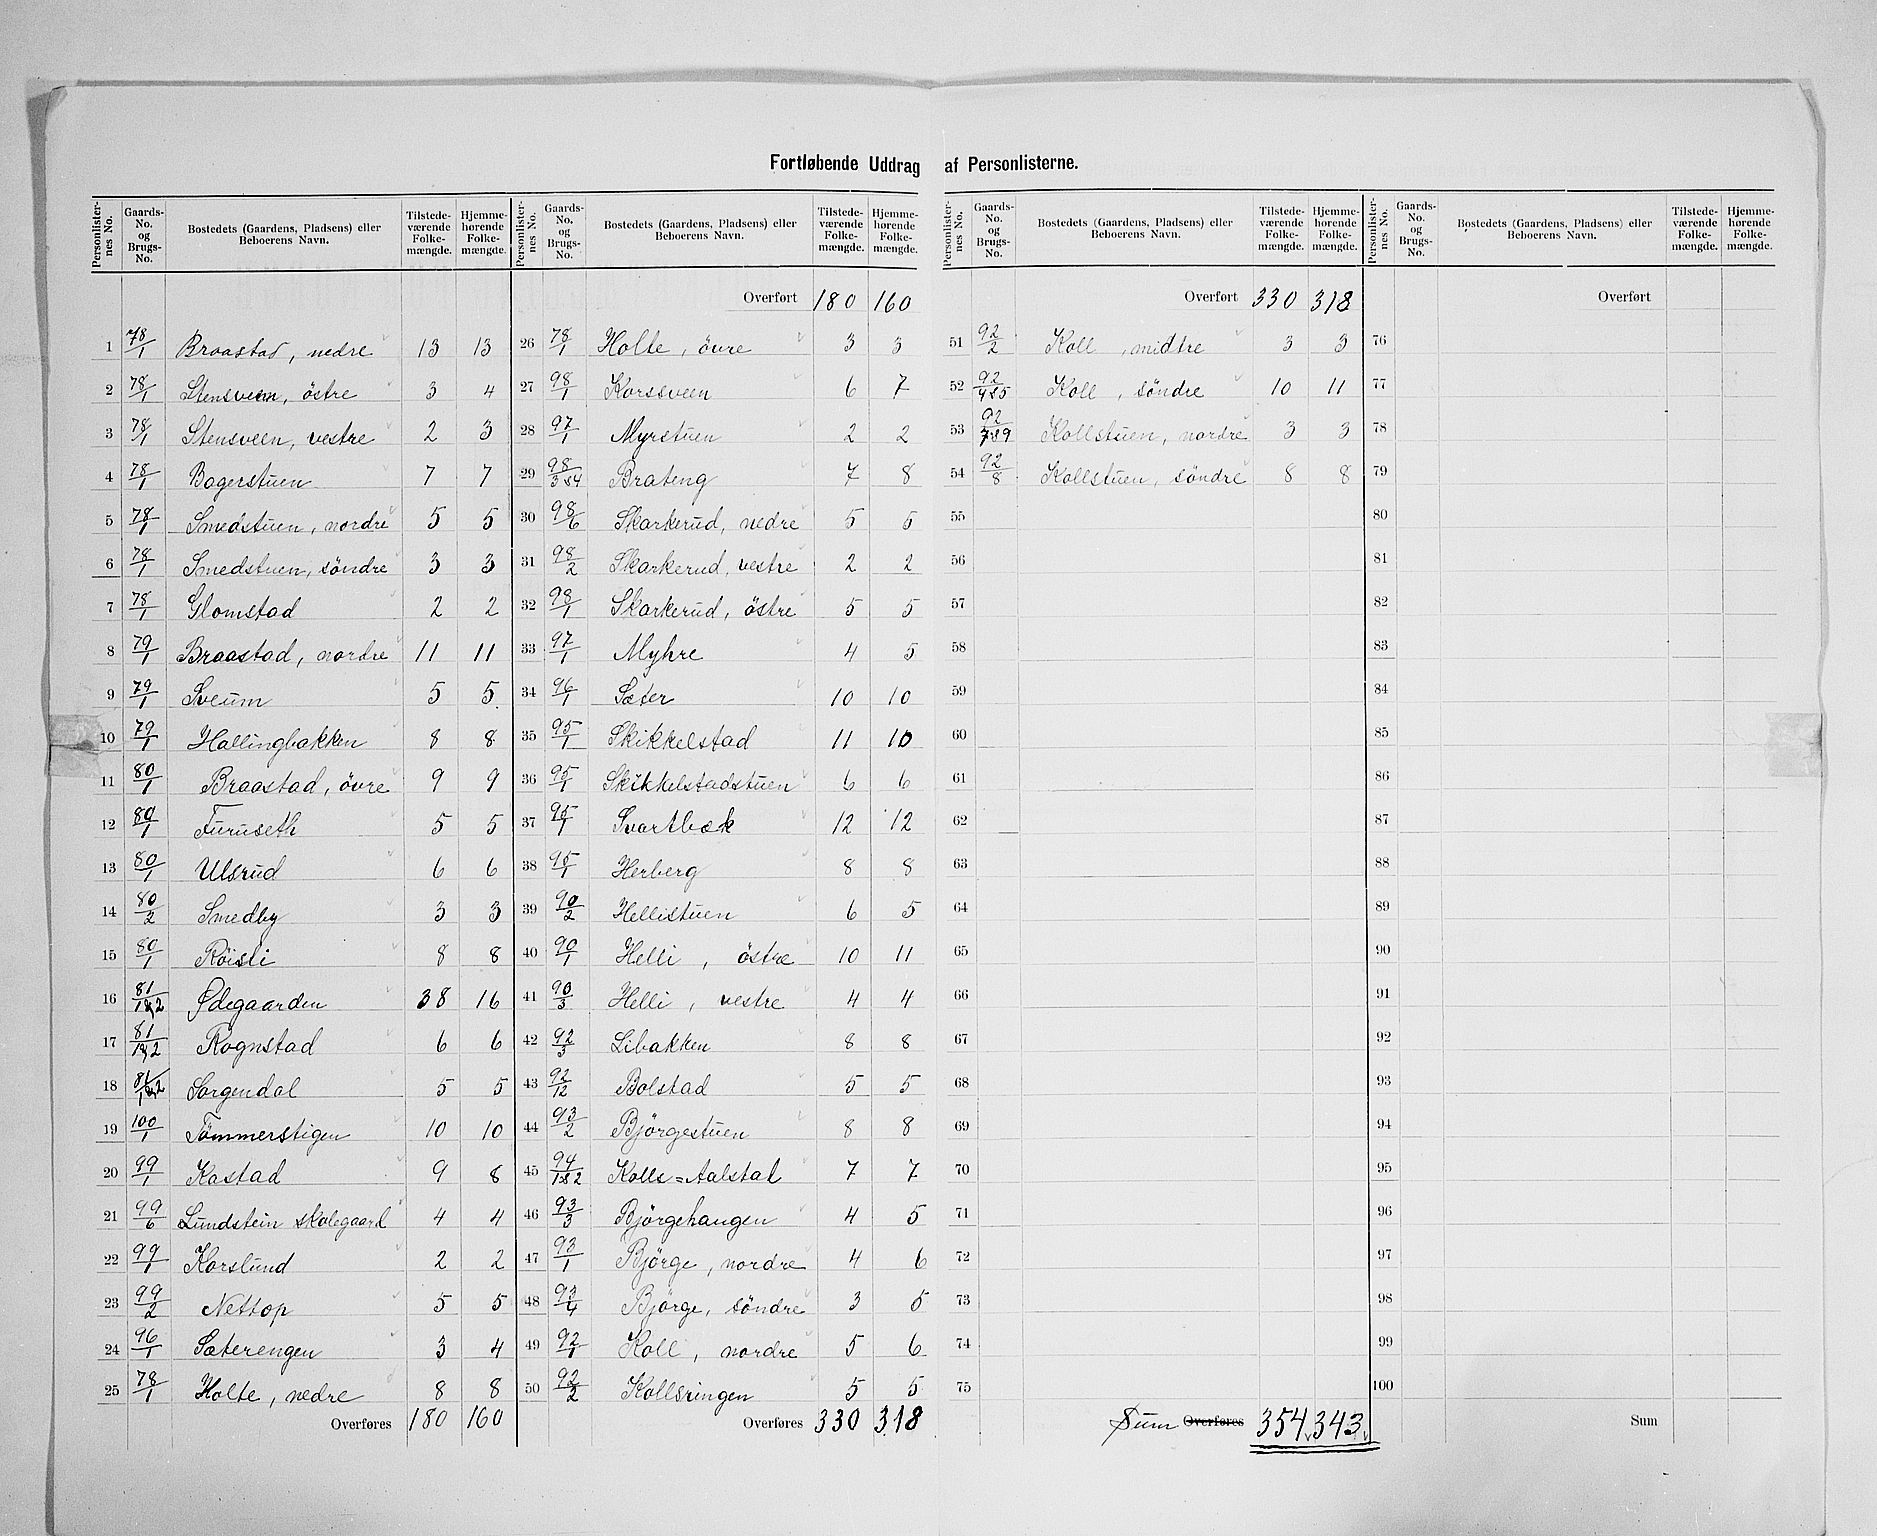 Fortløbende Uddrag af Personlisterne.
Personlisternes No. | Gaards-No. og Brugs-No. | Bostedets (Gaardens, Pladsens) eller Beboerens Navn. | Tilstedeværende Folkemængde. | Hjemmehørende Folkemængde.
1 78/1 Braastad, nedre 13 13
2 78/1 Stensveen, östre 3 4
3 78/1 Stensveen, vestre 2 3
4 78/1 Bagerstuen 7 7
5 78/1 Smedstuen, nordre 5 5
6 78/1 Smedstuen, söndre 3 3
7 78/1 Glomstad 2 2
8 79/1 Braastad, nordre 11 11
9 79/1 Sveum 5 5
10 79/1 Hallingbakken 8 8
11 80/1 Braastad, övre 9 9
12 80/1 Furuseth 5 5
13 80/1 Ulsrud 6 6
14 80/2 Smedby 3 3
15 80/1 Röisli 8 8
16 81/1&2 Ødegaarden 38 16
17 81/1&2 Rognstad 6 6
18 81/1&2 Sorgendal 5 5
19 100/1 Tömmerstigen 10 10
20 99/1 Kastad 9 8
21 99/6 Lundstein skolegaard 4 4
22 99/1 Korslund 2 2
23 99/2 Nettop 5 5
24 96/1 Sæterengen 3 4
25 78/1 Holte, nedre 8 8
Overføres 180 160
Personlisternes No. | Gaards-No. og Brugs-No. | Bostedets (Gaardens, Pladsens) eller Beboerens Navn. | Tilstedeværende Folkemængde. | Hjemmehørende Folkemængde.
Overført 180 160
26 78/1 Holte, övre 3 3
27 98/1 Korsveen 6 7
28 97/1 Myrstuen 2 2
29 98/3&4 Brateng 7 8
30 98/6 Skarkerud, nedre 5 5
31 98/2 Skarkerud, vestre 2 2
32 98/1 Skarkerud, östre 5 5
33 97/1 Myhre 4 5
34 96/1 Sæter 10 10
35 95/1 Skikkelstad 11 10
36 95/1 Skikkelstadstuen 6 6
37 95/1 Svartbæk 12 12
38 95/1 Herberg 8 8
39 90/2 Hellistuen 6 5
40 90/1 Helli, östre 10 11
41 90/3 Helli, vestre 4 4
42 92/3 Libakken 8 8
43 92/12 Bolstad 5 5
44 93/2 Björgestuen 8 8
45 94/1&2 Kolls=Aalstad 7 7
46 93/3 Björgehaugen 4 5
47 93/1 Björge, nordre 4 6
48 93/4 Björge, söndre 3 5
49 92/1 Koll, nordre 5 6
50 92/2 Kollsringen 5 5
Overføres 330 318
Personlisternes No. | Gaards-No. og Brugs-No. | Bostedets (Gaardens, Pladsens) eller Beboerens Navn. | Tilstedeværende Folkemængde. | Hjemmehørende Folkemængde.
Overført 330 318
51 92/2 Koll, midtre 3 3
52 92/4&5 Koll, söndre 10 11
53 92/7&9 Kollstuen, nordre 3 3
54 92/8 Kollstuen, söndre 8 8
55
56
57
58
59
60
61
62
63
64
65
66
67
68
69
70
71
72
73
74
75
Sum Overføres 354 343
Personlisternes No. | Gaards-No. og Brugs-No. | Bostedets (Gaardens, Pladsens) eller Beboerens Navn. | Tilstedeværende Folkemængde. | Hjemmehørende Folkemængde.
Overført
76
77
78
79
80
81
82
83
84
85
86
87
88
89
90
91
92
93
94
95
96
97
98
99
100
Sum